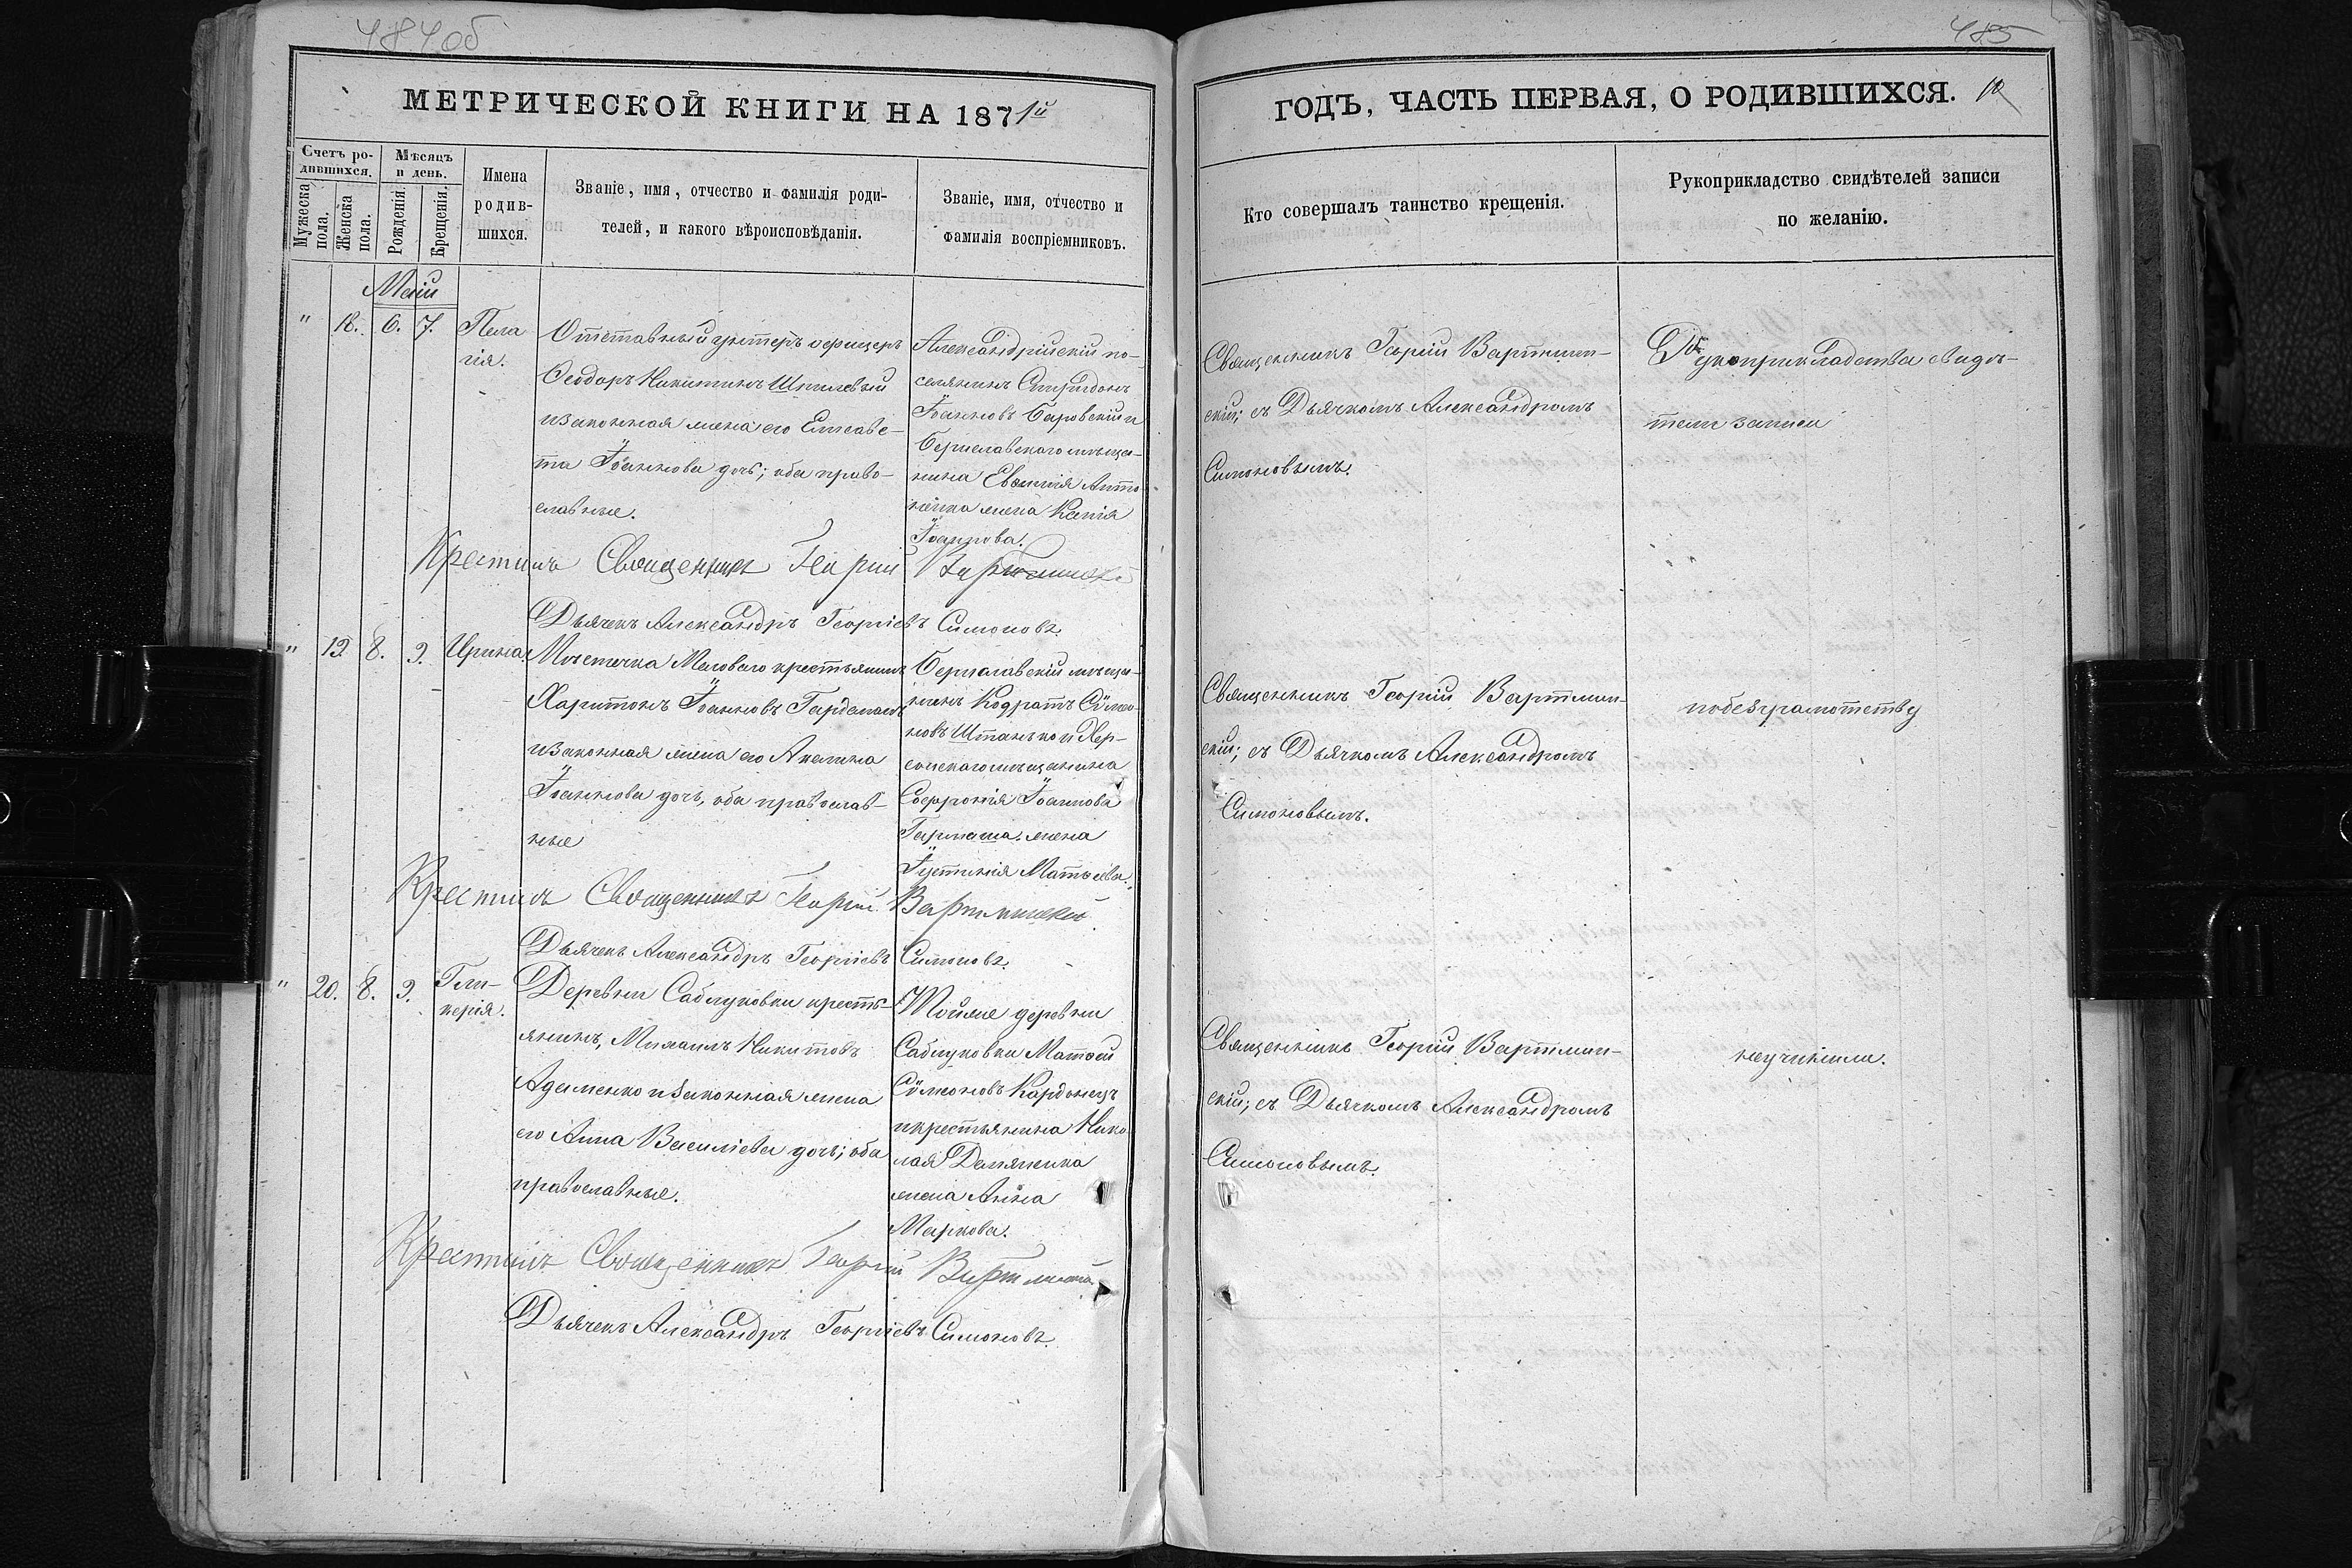 484 об
МЕТРИЧЕСКОЙ КНИГИ НА 1871й
Счетъ ро-
дившихся.
Мужеска пола.
Женска пола.
Мѣсяцъ
и день.
Рожденія.
Крещенія.
Имена
родив-
шихся.
Званіе, имя, отчество и фамилія роди-
телей, и какого вѣроисповѣданія.
Званіе, имя, отчество и
фамилія воспріемниковъ.
Май
" 18. 6. 7. Пела
гія.
Отставный унтеръ офицеръ
Ѳеодоръ Никитинъ Шпилевый
и законная жена его Елисаве-
та Іоаннова дочь; оба право-
славные.
Александрійскій по-
селянинъ Спиридонъ
Іоанновъ Боровскій и
Бериславскаго мѣща-
нина Евѳимія Анто-
ненка жена Ксенія
Іоаннова.
Крестилъ Священникъ Георгій Вартминскій
Дьячекъ Александръ Георгіевъ Симоновъ
" 19 8. 9. Ирина.
Мѣстечка Меловаго крестьянинъ
Харитонъ Іоанновъ Гардаманъ
и законная жена его Акелина
Іоаннова дочь, оба православ-
ные
Бериславскій мѣща-
нинъ Кодратъ Сѵмео-
новъ Штанько и Хер-
сонскаго мѣщанина
Софронія Іоаннова
Гармаша жена
Іустинія Матѳеева.
Крестилъ Священникъ Георгій Вартминскій
Дьячекъ Александръ Георгіевъ Симоновъ.
" 20. 8. 9. Гли-
керія.
Деревни Саблуковки кресть-
янинъ, Михаилъ Никитовъ
Адаменко и законная жена
его Анна Василіева дочь; оба
православные.
Тойже деревни
Саблуковки Матѳей
Сѵмеоновъ Кардонецъ
и крестьянина Нико-
лая Демяненка
жена Анна
Маркова.
Крестилъ Священникъ Георгій Вартминскій
Дьячекъ Александръ Георгіевъ Симоновъ.
485
ГОДЪ, ЧАСТЬ ПЕРВАЯ, О РОДИВШИХСЯ. 10
Кто совершалъ таинство крещенія.
Рукоприкладство свидѣтелей записи
по желанію.
Священникъ Георгій Вартмин-
скій; съ Дьячкомъ Александромъ
Симоновымъ.
Рукоприкладства свидѣ-
тели записи
Священникъ Георгій Вартмин-
скій; съ Дьячкомъ Александромъ
Симоновымъ.
по безграмотству
Священникъ Георгій Вартмин-
скій; съ Дьячкомъ Александромъ
Симоновымъ.
неучинили.